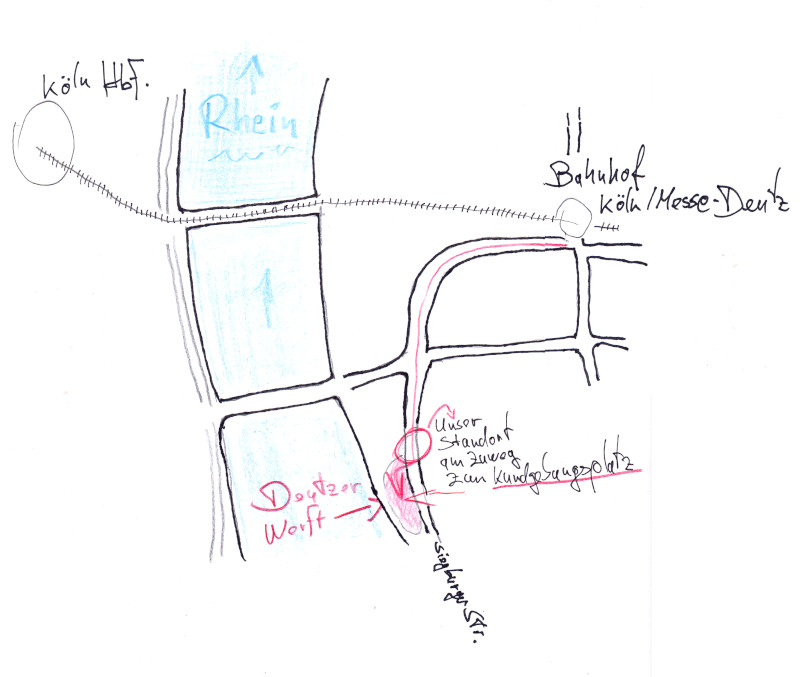 Köln Hbf.
Rhein
Bahnhof
Köln/Messe-Deutz
Unser
Standort
am Zuweg
zum Kundgebungsplatz
Deutzer
Werft
Siegburger Str.